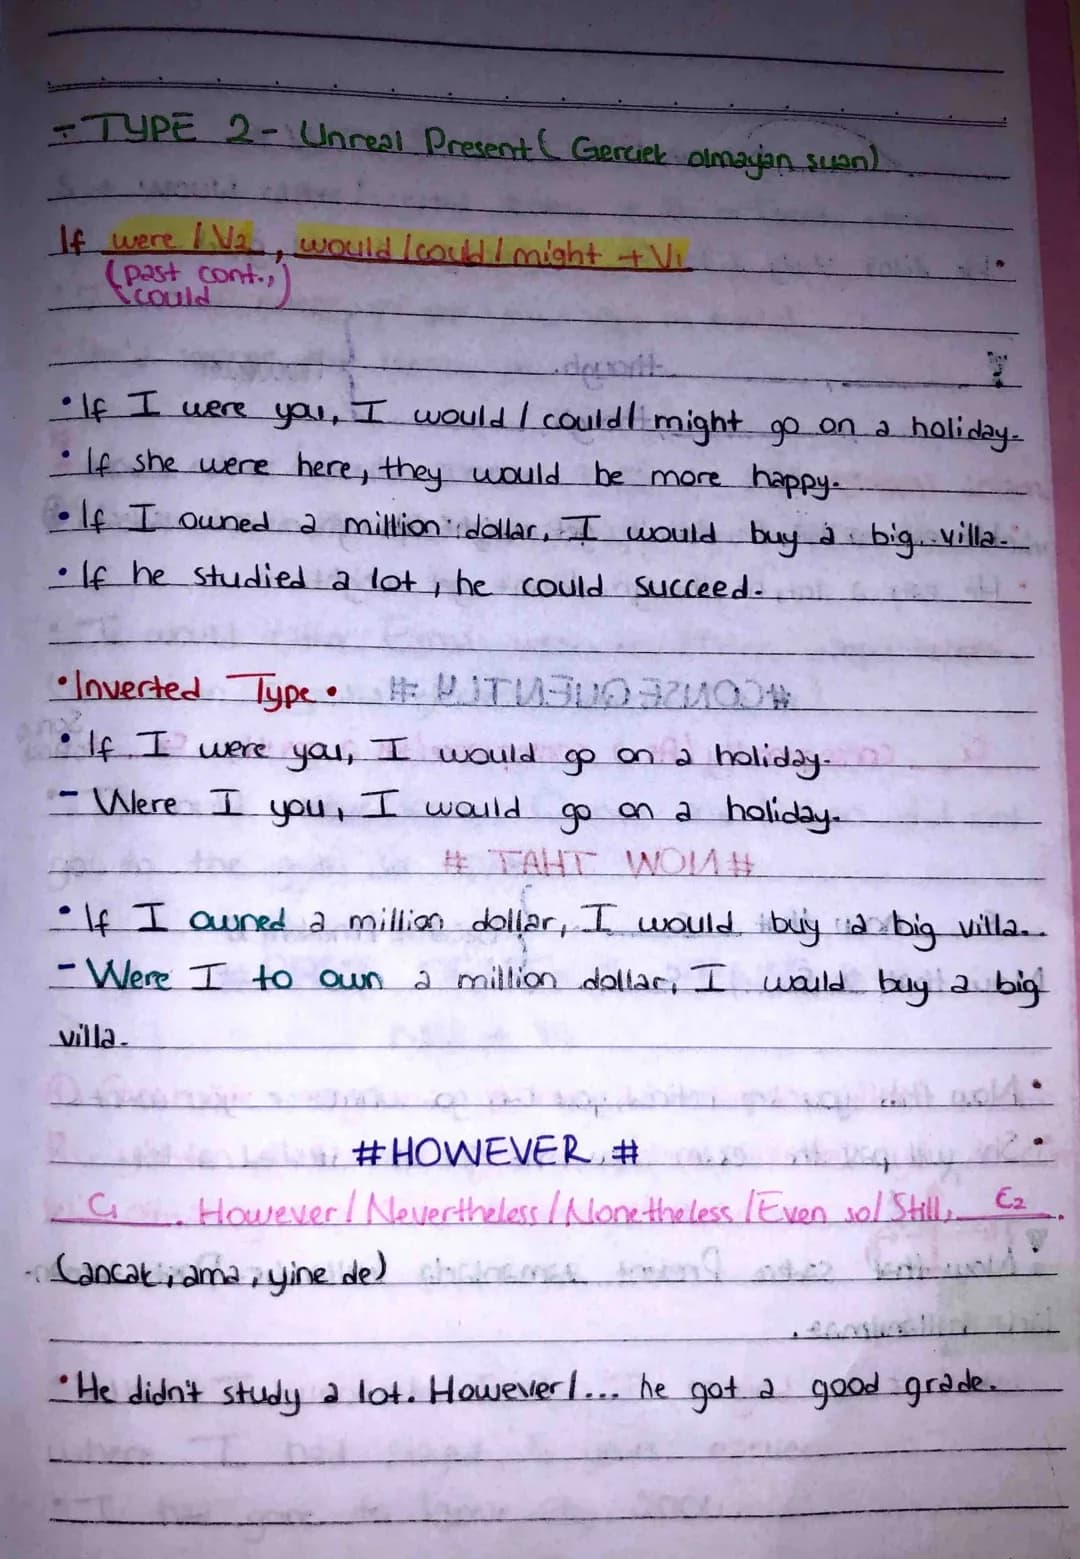 - TYPE 2 - Unreal Present ( Gerçek olmayan şuan)
If were / V2 , would / could / might + V1
(past cont.,
could)
• If I were you, I would / could / might go on a holiday.
• If she were here, they would be more happy.
• If I owned a million dollar, I would buy a big villa.
• If he studied a lot, he could succeed.
• Inverted Type •
• If I were you, I would go on a holiday.
- Were I you, I would go on a holiday.
• If I owned a million dollar, I would buy a big villa.
- Were I to own a million dollar, I would buy a big
villa.
#HOWEVER #
C1 . However / Nevertheless / Nonetheless / Even so / Still, C2 .
(ancak, ama, yine de)
• He didn't study a lot. However / ... he got a good grade.